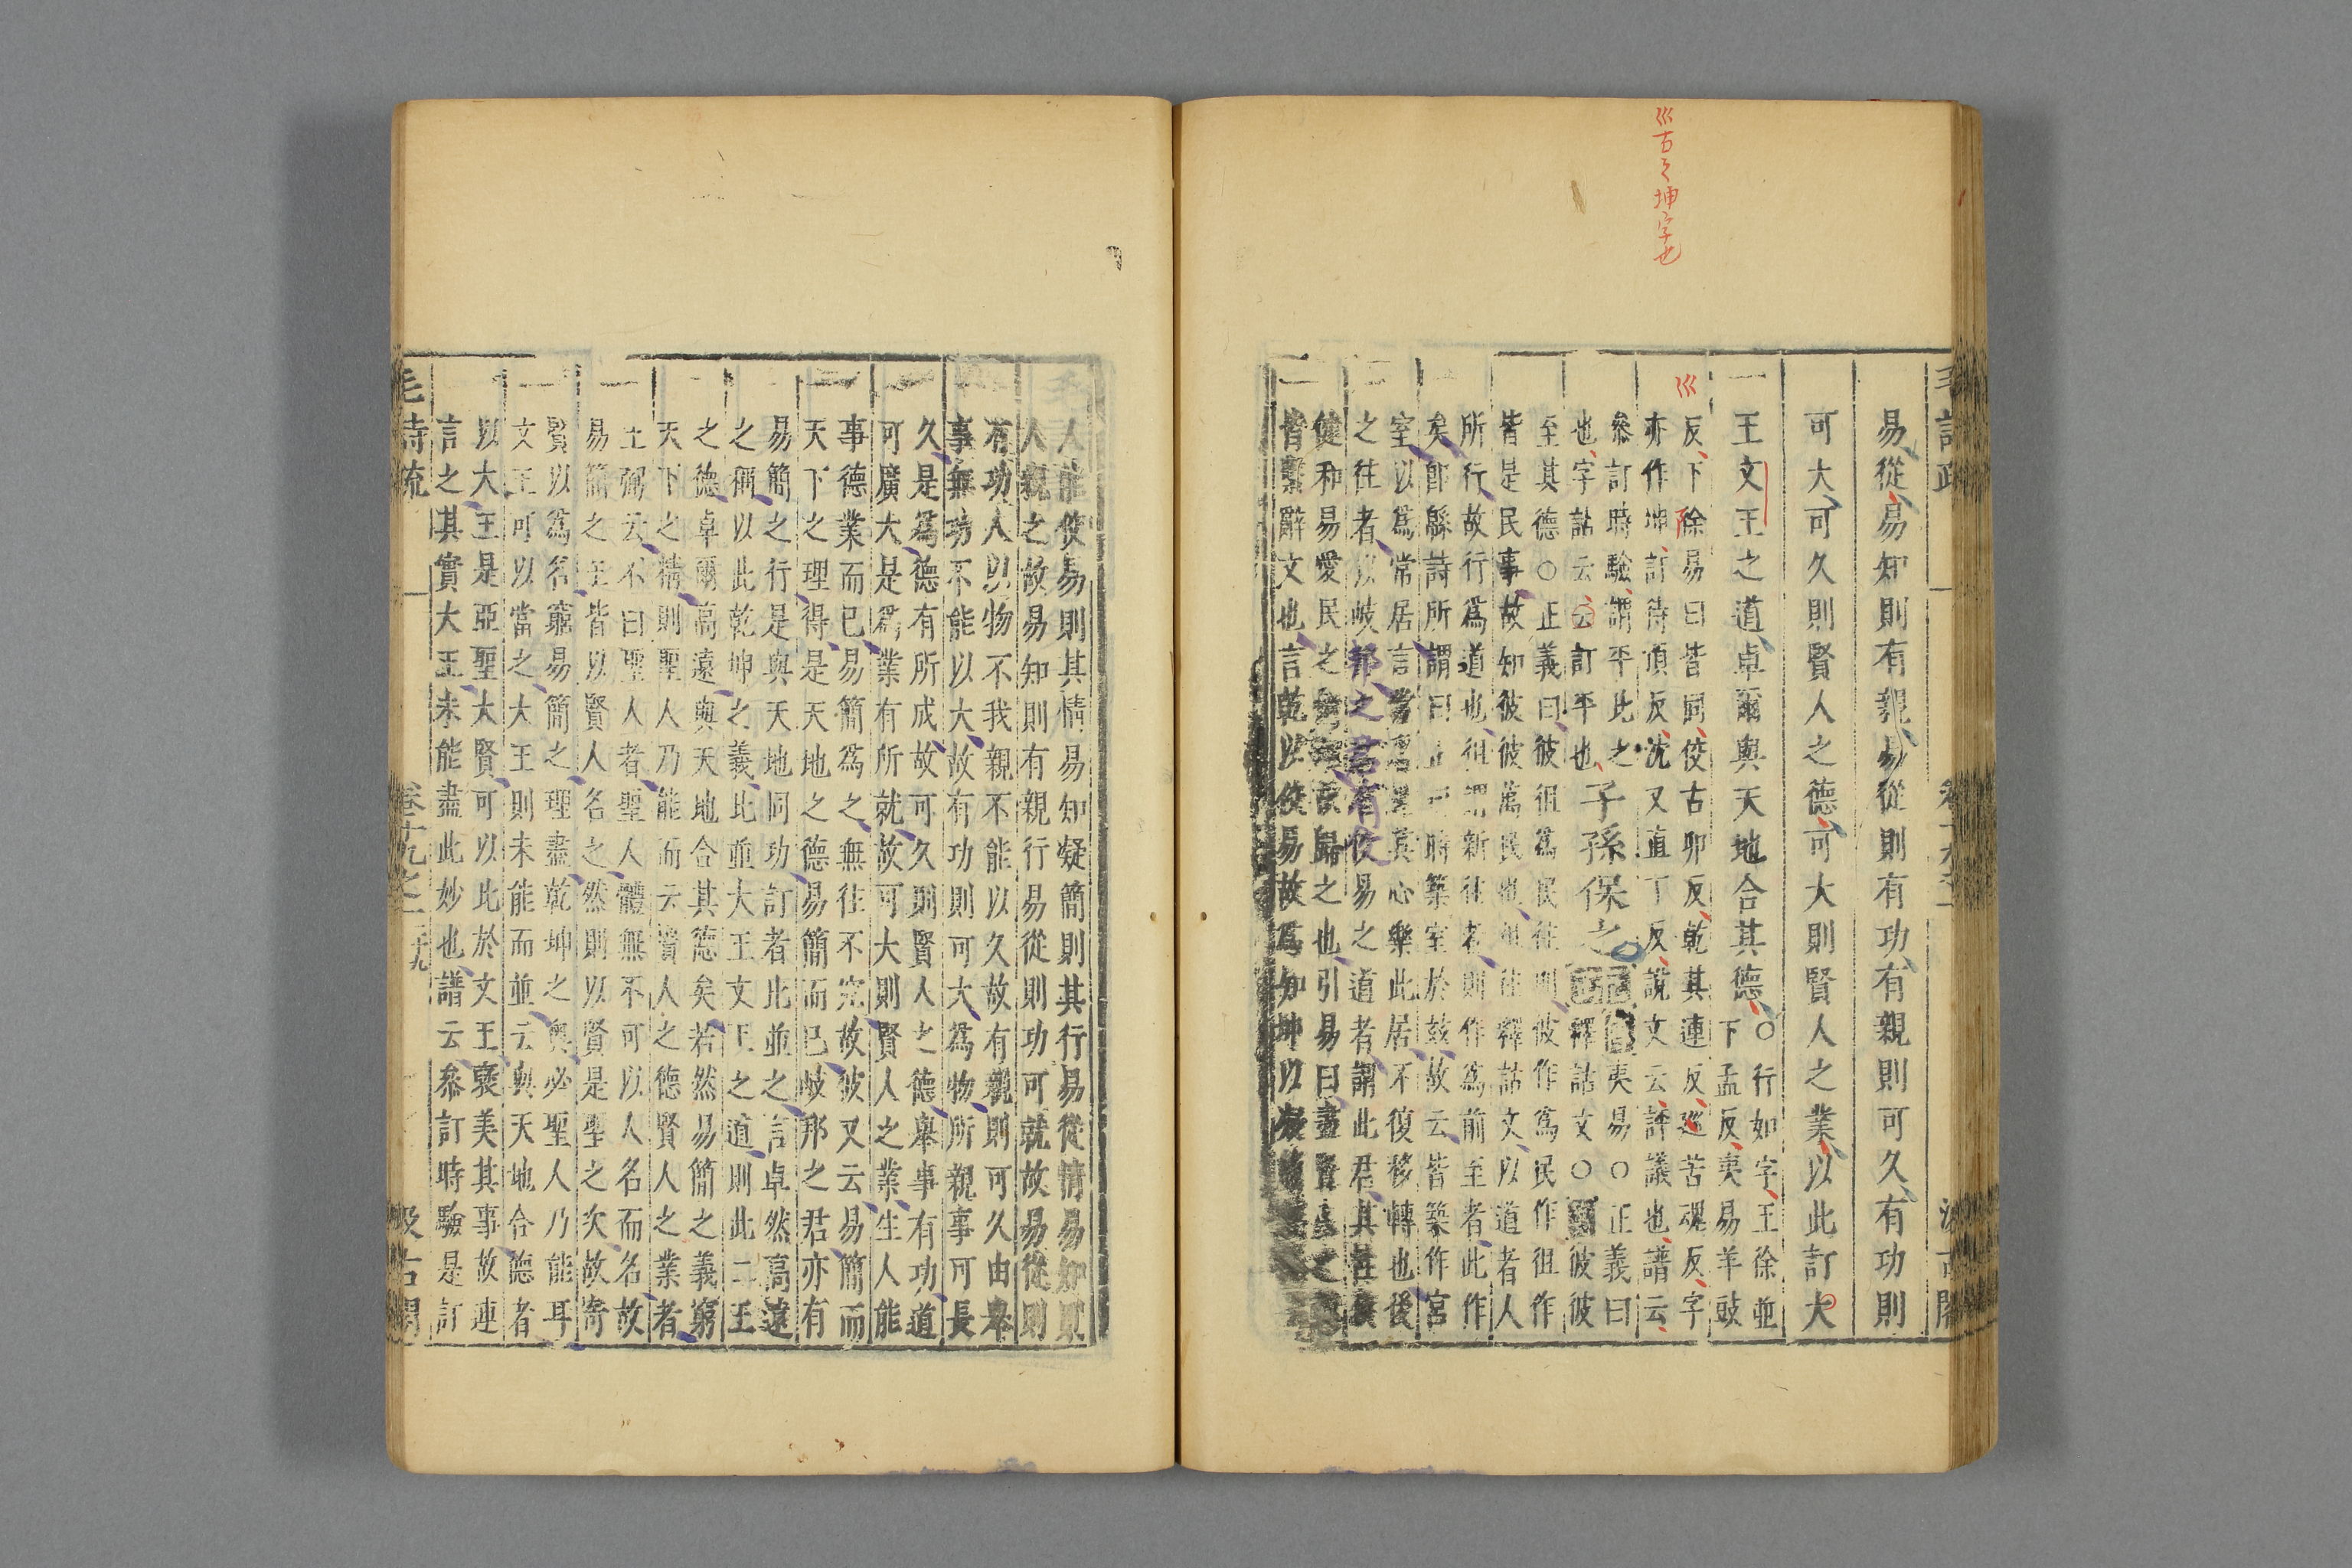 巛古之坤字也
易從易知則有親易從則有功有親則可久有功則
可大可久則賢人之德可大則賢人之業以此訂大
王文王之道卓爾與天地合其德
○行如字王徐並
下孟反夷易羊豉
反下徐易曰皆同佼古卯反乾其連反巛苦魂反字
亦作坤訂待頂反沈又直丁反說文云評議也譜云
參訂時驗謂平此之
也字詁云云訂平也
子孫保之
夷易○正義曰
釋詁文○箋彼彼
至其德○正義曰彼徂爲民往則彼作爲民作徂作
皆是民事故知彼彼萬民也徂往釋詁文以道者人
所行故行爲道也徂謂新往者則作爲前至者此作
矣卽緜詩所謂曰止曰時築室於茲故云皆築作宮
室以爲常居言其心樂此居不復移轉也後
之往者以岐邦之君有佼易之道者謂此君其性
健和易愛民之故歸之也引易曰盡
皆繫辭文也言乾以佼易故爲知坤以
人能佼易則其情易知凝簡則其行易從情易知則
人親之故易知則有親行易從則功可就故易從則
有功人以物不我親不能以久故有親則可久由舉
事無功不能以大故有功則可大爲物所親事可長
久是爲德有所成故可久則賢人之德舉事有功道
可廣大是爲業有所就故可大則賢人之業生人能
事德業而已易簡爲之無往不究故彼又云易簡而
天下之理得是天地之德易簡而已岐邦之君亦有
易簡之行是與天地同功訂者此並之言卓然高遠
之稱以此乾坤之義比並大王文王之道則此二王
之德卓爾高遠與天地合其德矣若然易簡之義窮
天下之精則聖人乃能而云賢人之德賢人之業者
王弼云不曰聖人者聖人體無不可以人名而名故
易簡之主皆以賢人名之然則以賢是聖之次故寄
賢以爲名窮易簡之理盡乾坤之奧必聖人乃能耳
文王可以當之大王則未能而並云與天地合德者
以大王是亞聖大賢可以比於文王褒美其事故連
言之其實大王未能盡此妙也譜云參訂時驗是訂
毛詩疏 卷十九之一 二十九 汲古閣